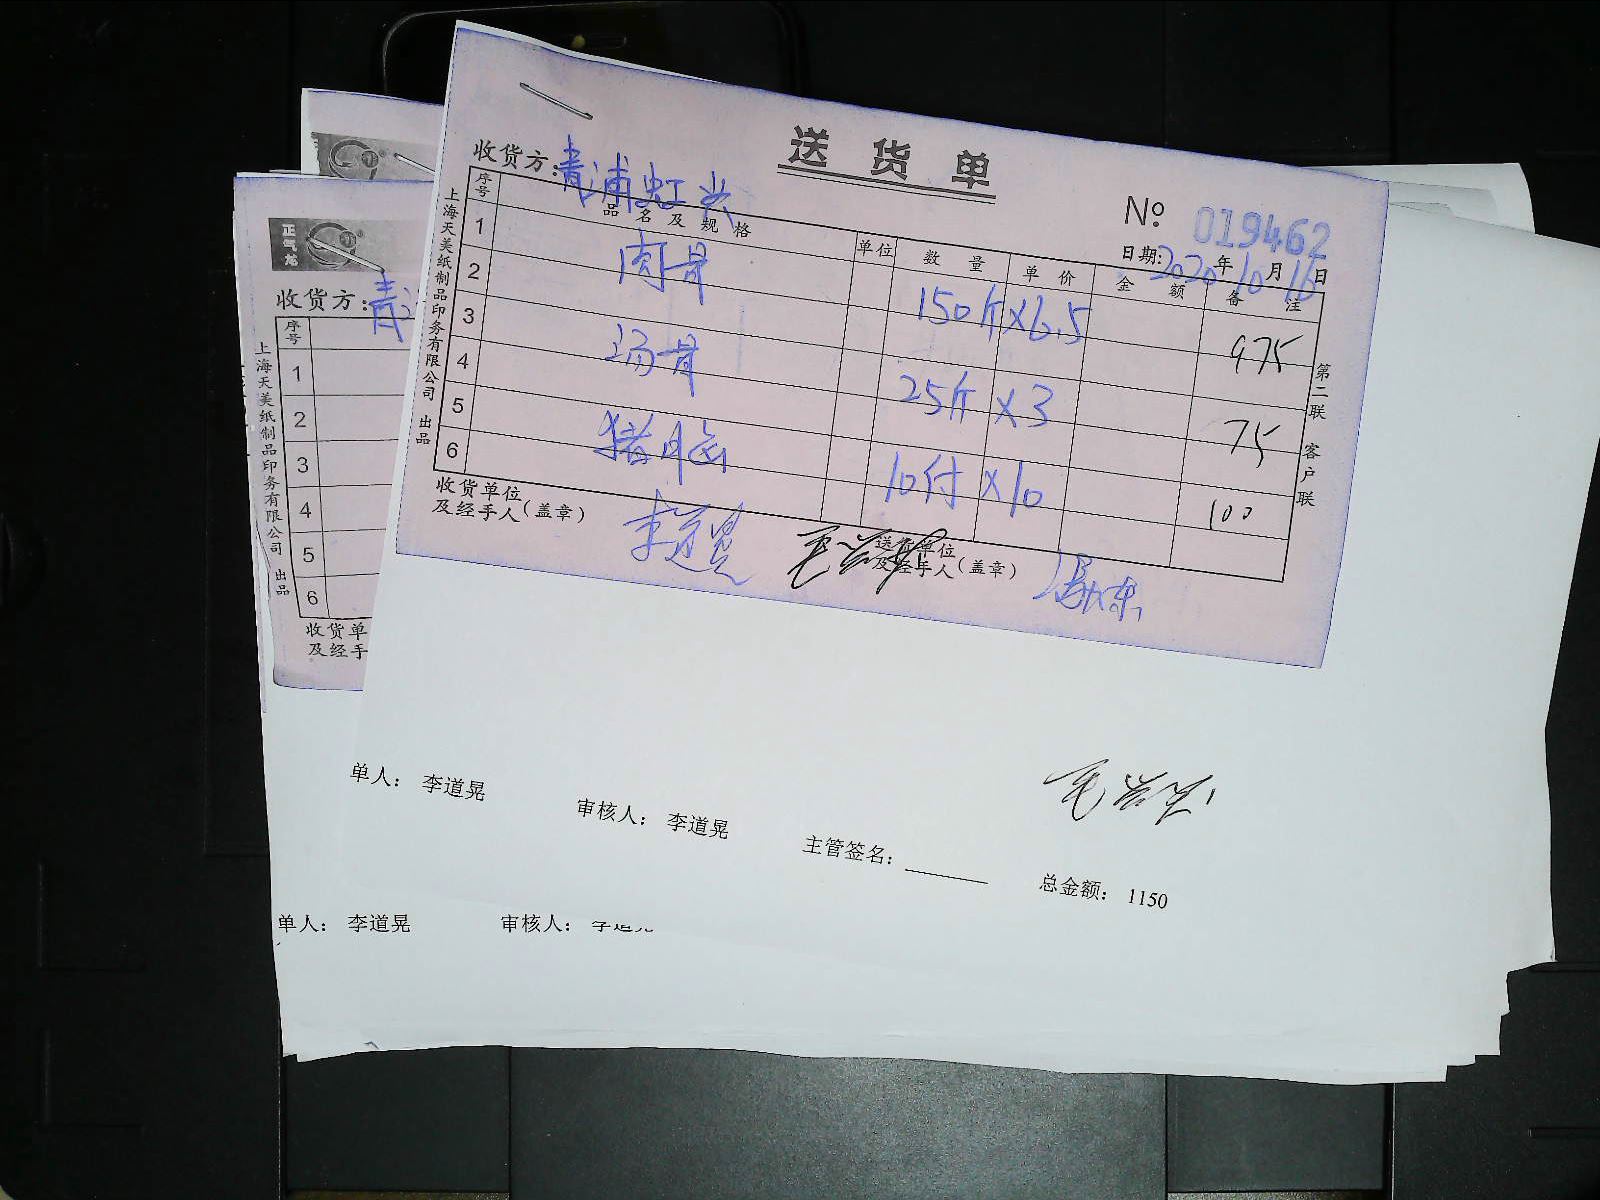 送货单
收货方：青浦虹兴
№ 019462
日期：2020年10月16日
序号 品名及规格 单位 数量 单价 金额 备注
1 肉骨 150斤×6.5 975
2
3 汤骨 25斤×3 75
4
5 猪脑 10付×10 100
6
收货单位及经手人（盖章） 李道晃
送货单位及经手人（盖章）
上海天美纸制品印务有限公司 出品
第二联 客户联
单人： 李道晃 审核人： 李道晃 主管签名： 总金额： 1150
正气龙
收货方：青
序号
1
2
3
4
5
6
收货单
及经手
上海天美纸制品印务有限公司 出品
单人： 李道晃 审核人：